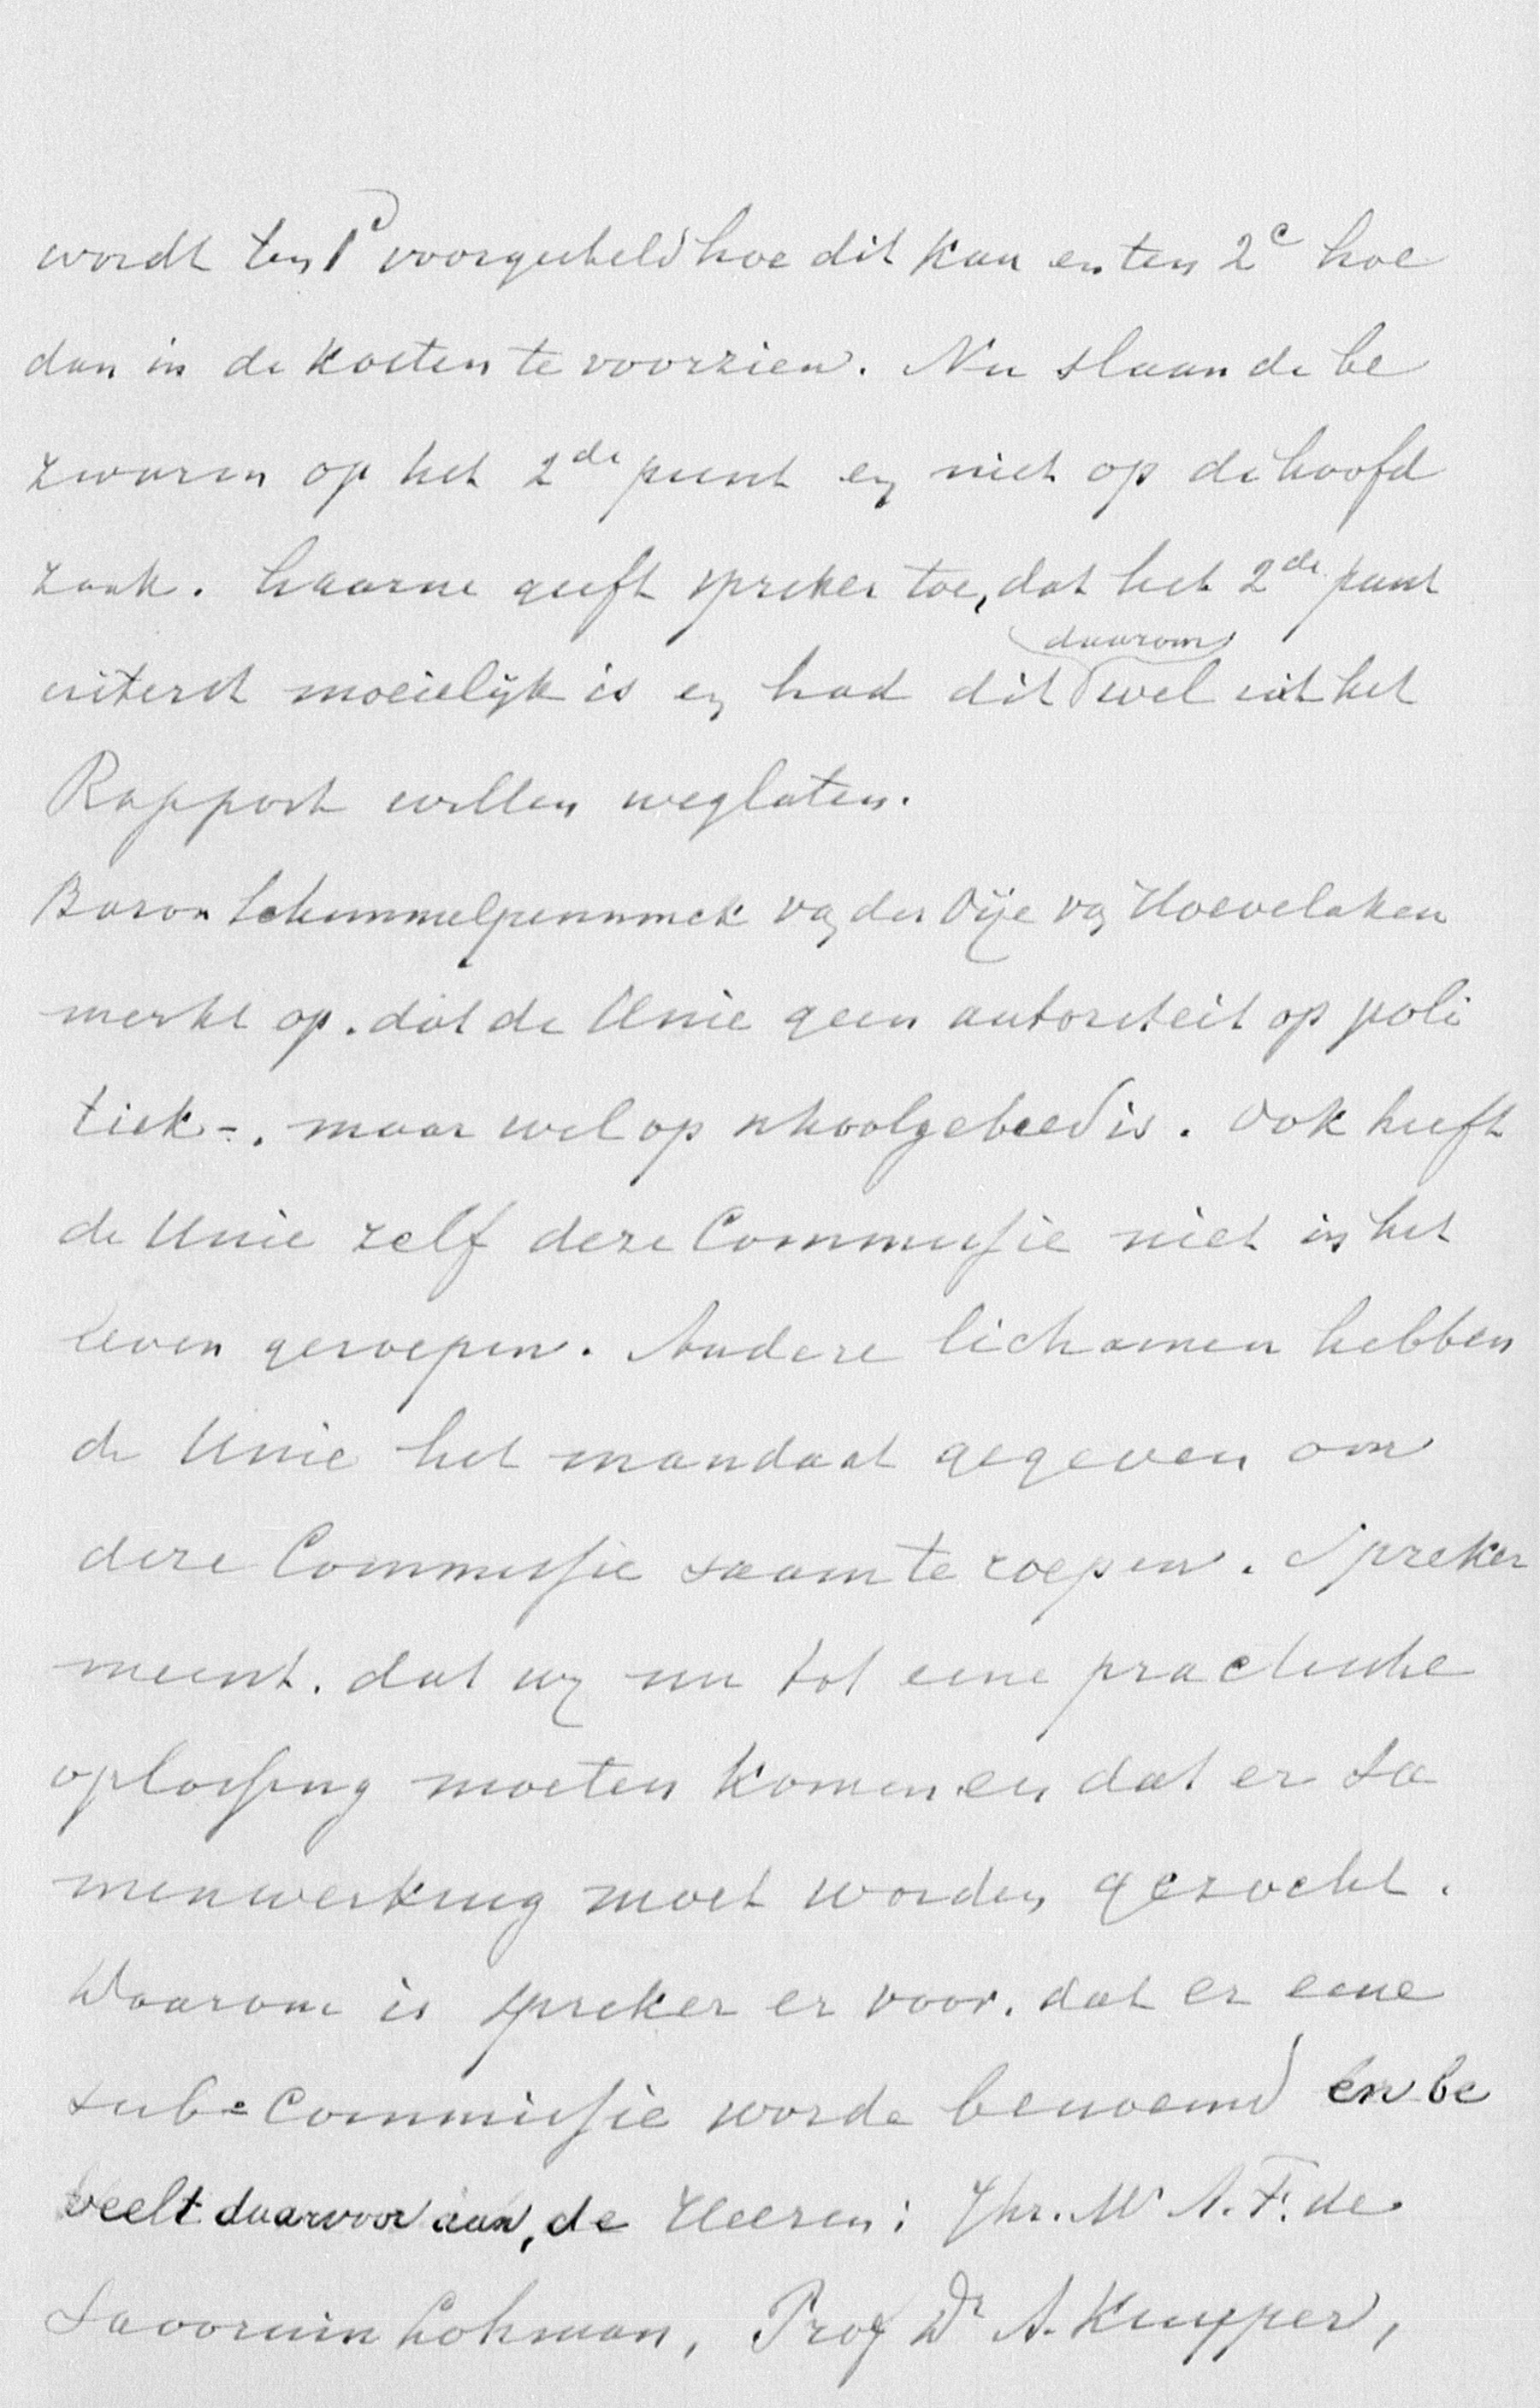 wordt ten 1e voorgesteld hoe dit kan en ten 2e hoe
dan in de kosten te voorzien. Nu slaan de be
zwaren op het 2de punt en niet op de hoofd
zaak. gaarne geeft spreker toe, dat het 2de punt
uiterst moeielijk is en had dit daarom wel uit het
Rapport willen weglaten.
Baron Schimmelpenninck van der Oije van Hoevelaken
merkt op, dat de Unie geen autoriteit op poli
tiek-, maar wel op schoolgebied is. Ook heeft
de Unie zelf deze Commissie niet in het
leven geroepen. Andere lichamen hebben
de Unie het mandaat gegeven om
deze Commissie saam te roepen. Spreker
meent, dat wij nu tot eene practische
oplossing moeten komen en dat er sa
menwerking moet worden gezocht.
Daarom is spreker er voor, dat er eene
sub=Commissie worde benoemd en be
veelt daarvoor aan, de Heeren: Jhr. Mr A. F. de
Savornin Lohman, Prof Dr A. Kuyper,